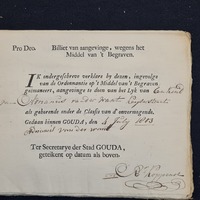 Pro Deo. Billiet van aangevinge, wegens het
Middel van 't Begraven.
IK ondergeschreven verklare by dezen, ingevolge
van de Ordonnantie op 't Middel van 't Begraven
geëmaneert, aangevinge te doen van het Lyk van een kind
van
als gehorende onder de Classis van d'onvermogende.
Gedaan binnen GOUDA, den 4 July 1803
Ter Secretarye der Stad GOUDA,
getekent op datum als boven.